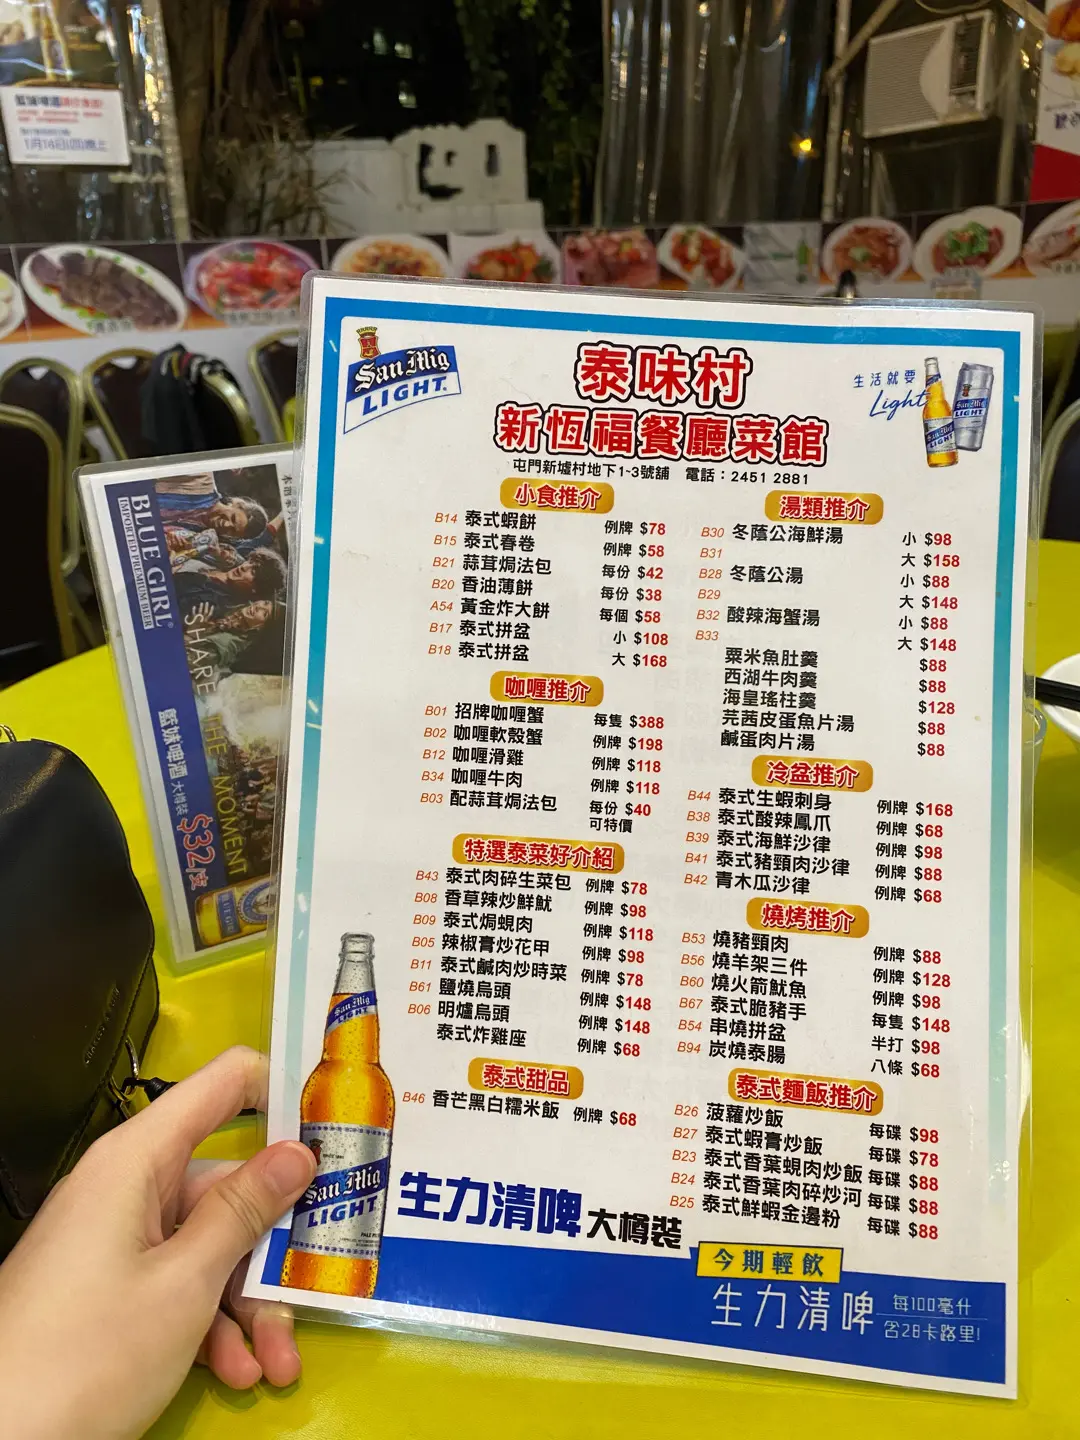 藍妹啤酒
1月16日(四)晚上
San Mig
LIGHT
泰味村
新恆福餐廳菜館
屯門新墟村地下1-3號舖 電話：2451 2881
生活就要
Light
小食推介
B14 泰式蝦餅 例牌 $78
B15 泰式春卷 例牌 $58
B21 蒜茸焗法包 每份 $42
B20 香油薄餅 每份 $38
A54 黃金炸大餅 每個 $58
B17 泰式拼盆 小 $108
B18 泰式拼盆 大 $168
咖喱推介
B01 招牌咖喱蟹 每隻 $388
B02 咖喱軟殼蟹 例牌 $198
B12 咖喱滑雞 例牌 $118
B34 咖喱牛肉 例牌 $118
B03 配蒜茸焗法包 每份 $40
可特價
特選泰菜好介紹
B43 泰式肉碎生菜包 例牌 $78
B08 香草辣炒鮮魷 例牌 $98
B09 泰式焗蜆肉 例牌 $118
B05 辣椒膏炒花甲 例牌 $98
B11 泰式鹹肉炒時菜 例牌 $78
B61 鹽燒烏頭 例牌 $148
B06 明爐烏頭 例牌 $148
泰式炸雞座 例牌 $68
泰式甜品
B46 香芒黑白糯米飯 例牌 $68
湯類推介
B30 冬蔭公海鮮湯 小 $98
B31 大 $158
B28 冬蔭公湯 小 $88
B29 大 $148
B32 酸辣海蟹湯 小 $88
B33 大 $148
粟米魚肚羹 $88
西湖牛肉羹 $88
海皇瑤柱羹 $128
芫茜皮蛋魚片湯 $88
鹹蛋肉片湯 $88
冷盆推介
B44 泰式生蝦刺身 例牌 $168
B38 泰式酸辣鳳爪 例牌 $68
B39 泰式海鮮沙律 例牌 $98
B41 泰式豬頸肉沙律 例牌 $88
B42 青木瓜沙律 例牌 $68
燒烤推介
B53 燒豬頸肉 例牌 $88
B56 燒羊架三件 例牌 $128
B60 燒火箭魷魚 例牌 $98
B67 泰式脆豬手 每隻 $148
B54 串燒拼盆 半打 $98
B94 炭燒泰腸 八條 $68
泰式麵飯推介
B26 菠蘿炒飯 每碟 $98
B27 泰式蝦膏炒飯 每碟 $78
B23 泰式香葉蜆肉炒飯 每碟 $88
B24 泰式香葉肉碎炒河 每碟 $88
B25 泰式鮮蝦金邊粉 每碟 $88
San Mig
LIGHT
生力清啤 大樽裝
今期輕飲
生力清啤 每100毫升
含28卡路里!
BLUE GIRL
IMPORTED PREMIUM BEER
SHARE THE MOMENT
藍妹啤酒 大樽裝 $32/支